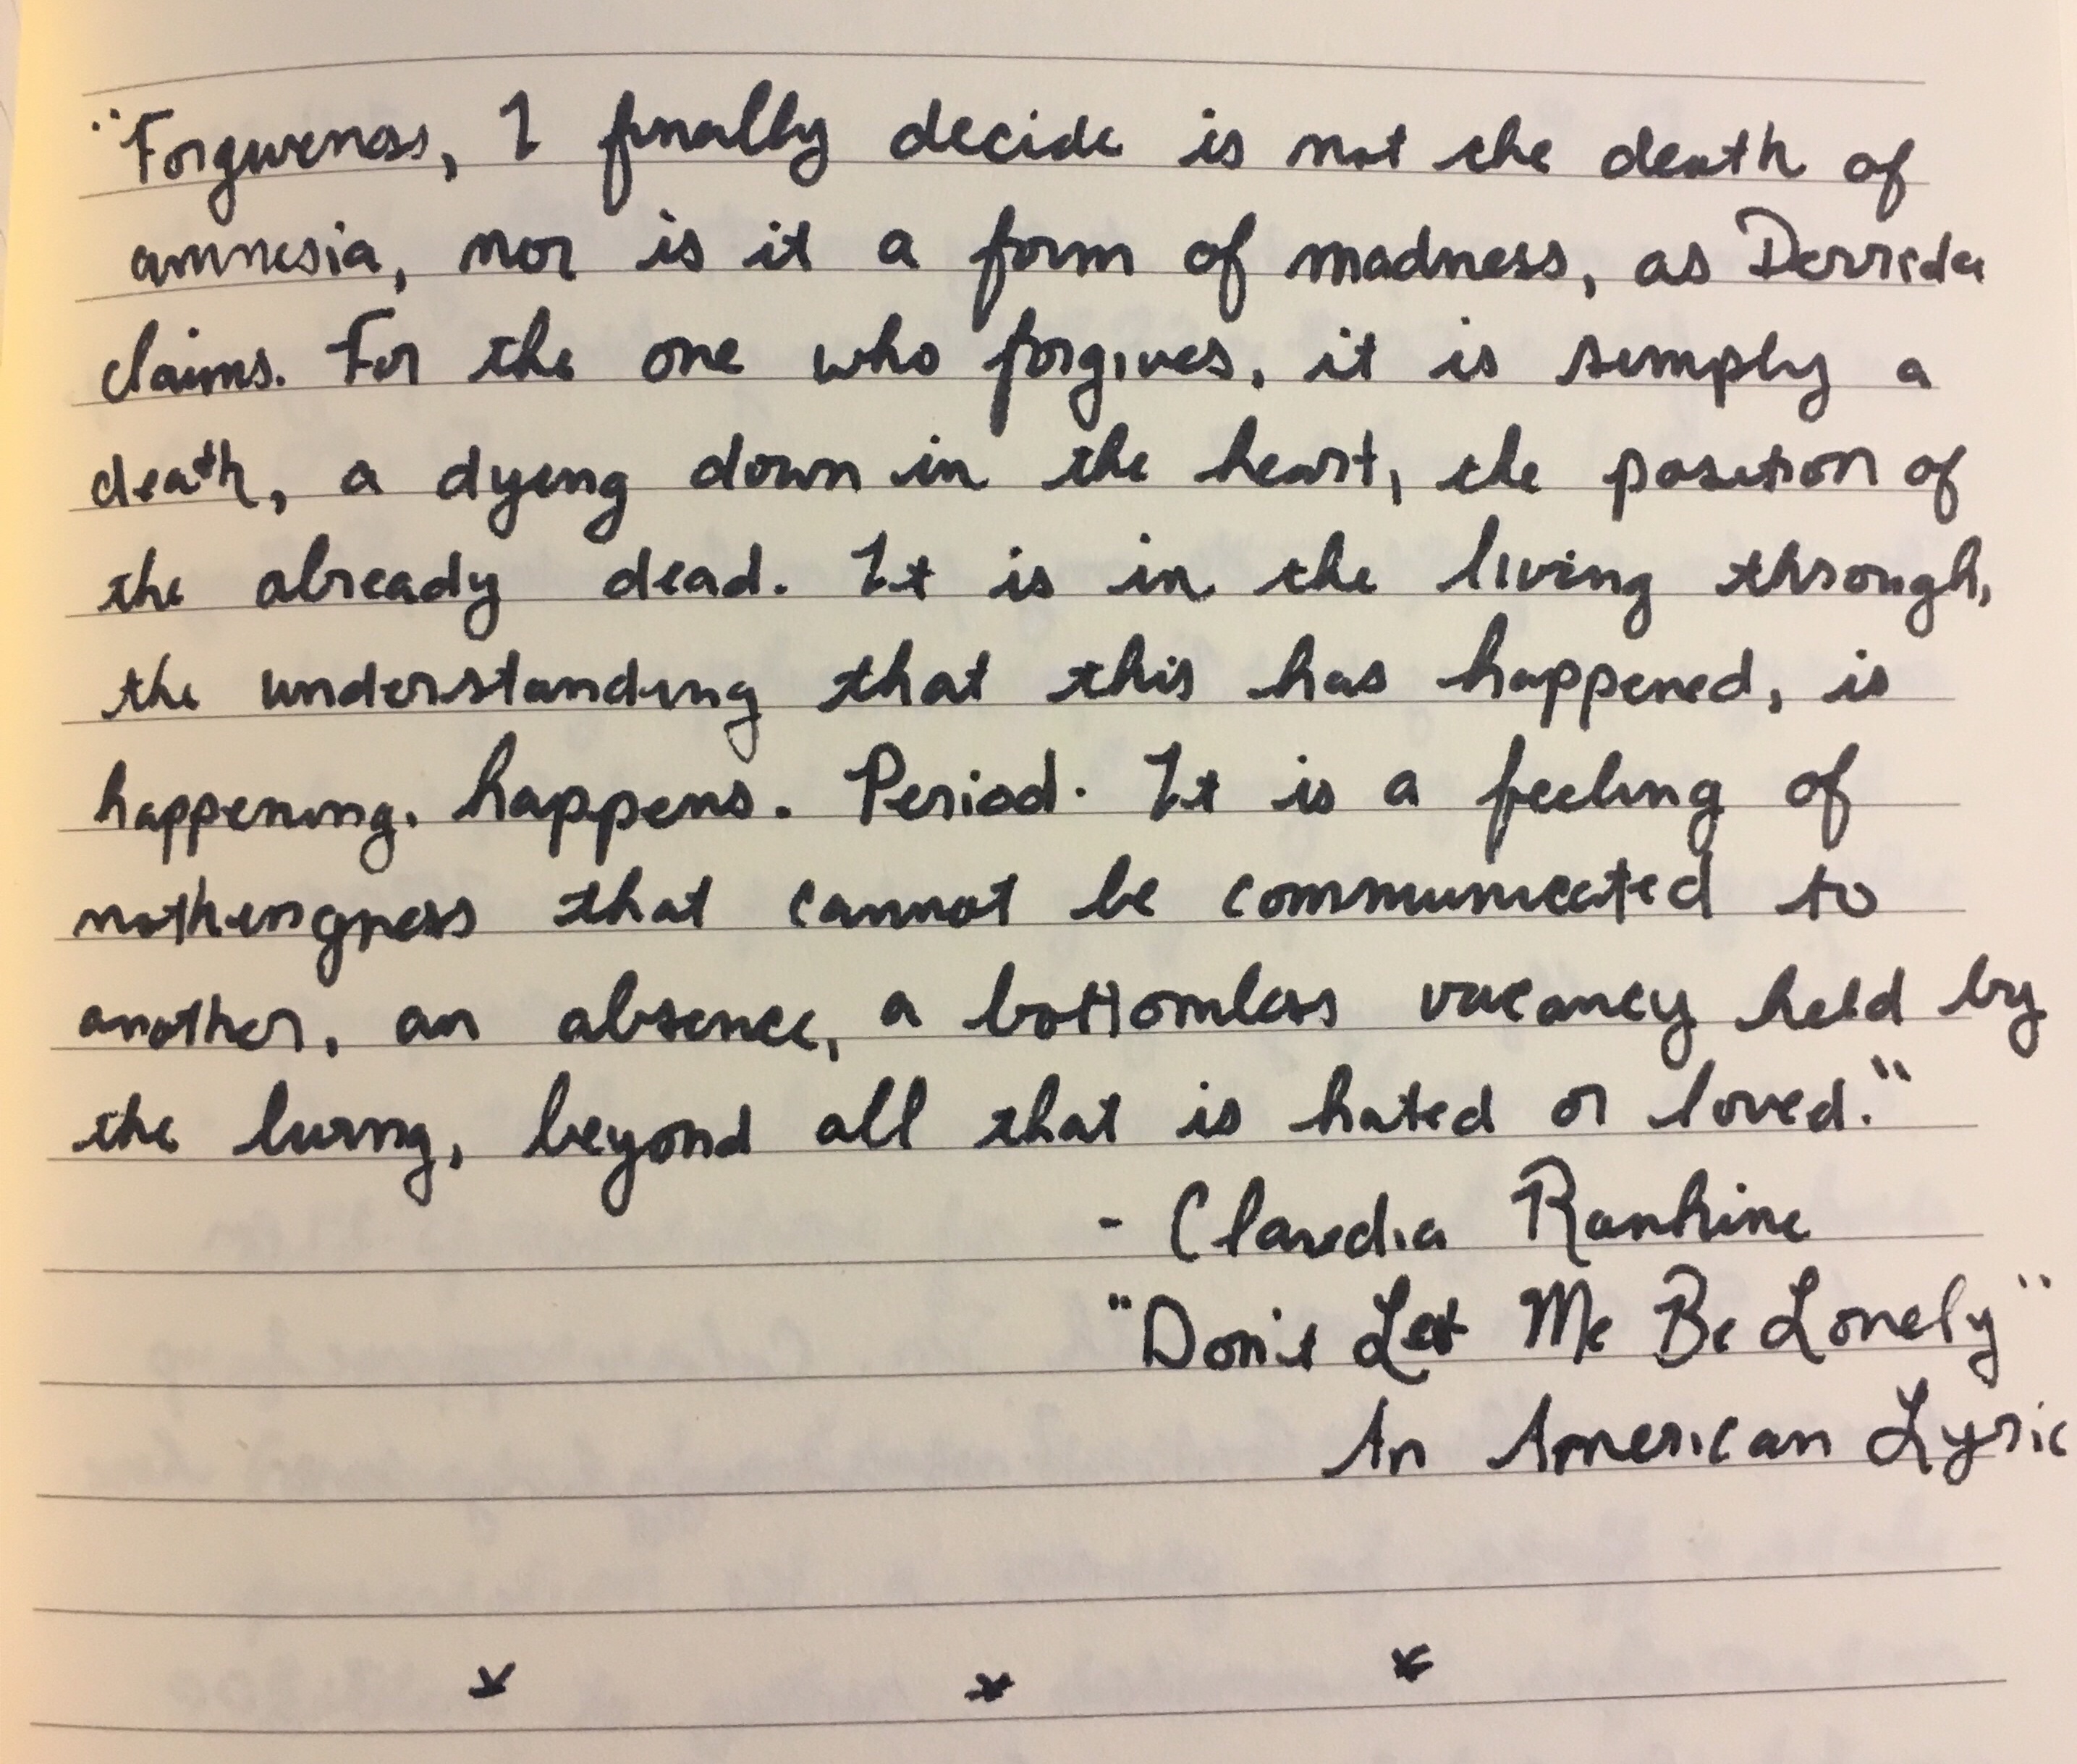 "Forgiveness, I finally decide is not the death of
amnesia, nor is it a form of madness, as Derrida
claims. For the one who forgives, it is simply a
death, a dying down in the heart, the position of
the already dead. It is in the living through,
the understanding that this has happened, is
happening, happens. Period. It is a feeling of
nothingness that cannot be communicated to
another, an absence, a bottomless vacancy held by
the living, beyond all that is hated or loved."
- Claudia Rankine
"Don't Let Me Be Lonely"
An American Lyric
* * *